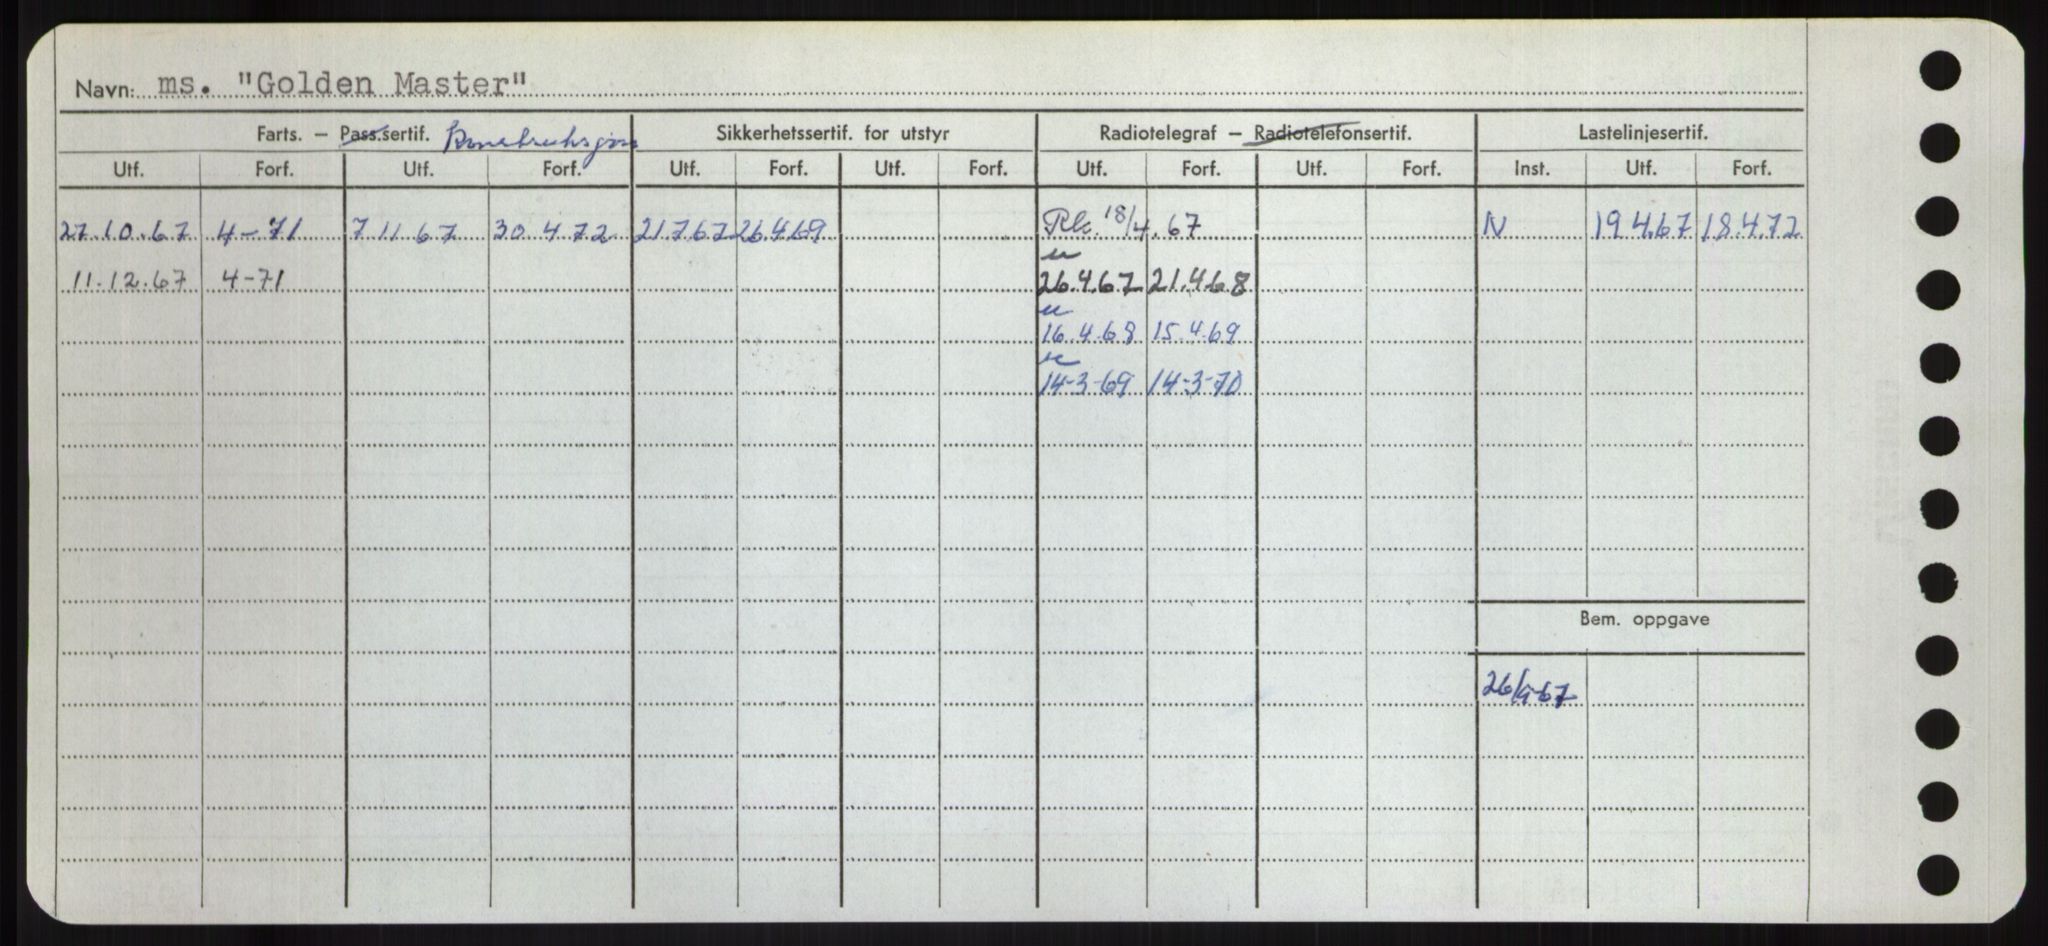 Navn: ms. "Golden Master"
Farts. – Pass.sertif. Sikkerhetssertif. for utstyr Radiotelegraf – Radiotelefonsertif. Lastelinjesertif.
Utf. Forf. Utf. Forf. Utf. Forf. Utf. Forf. Utf. Forf. Utf. Forf. Inst. Utf. Forf.
27.10.67 4-71 7 11 67 30 4 72 21 7 67 26.4.69 18/4.67 N 19 4.67 18.4.72
11.12.67 4-71 26.4.67 21.4.68
16.4.68 15.4.69
14-3-69 14-3-70
Bem. oppgave